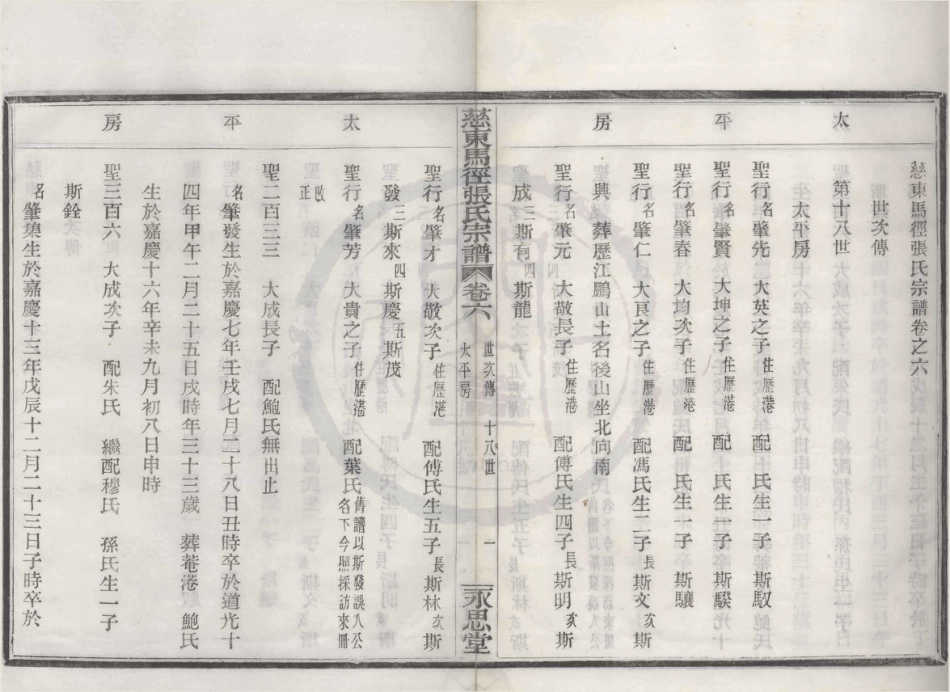 太
平
房
慈東馬徑張氏宗譜卷之六
世次傳
第十八世
太平房
聖行名肇先 大英之子住歷港 配 氏生一子 斯馭
聖行名肇賢 大坤之子住歷港 配 氏生一子 斯騤
聖行名肇春 大均次子住歷港 配 氏生一子 斯驤
聖行名肇仁 大良之子住歷港 配馮氏生二子長斯文次斯
興 葬歷江鵬山土名後山坐北向南
聖行名肇元 大敬長子住歷港 配傅氏生四子長斯明次斯
成三斯有四斯龍
慈東馬徑張氏宗譜 卷六 世次傳 十八世 太平房 一 永思堂
太
平
房
聖行名肇才 大敬次子住歷港 配傅氏生五子長斯林次斯
發三斯來四斯慶五斯茂
聖行名肇芳 大貴之子住歷港 配葉氏舊譜以斯發誤入公名下今照採訪來冊
改正
聖二百三三 大成長子 配鮑氏無出止
名肇發生於嘉慶七年壬戌七月二十八日丑時卒於道光十
四年甲午二月二十五日戌時年三十三歲 葬菴港 鮑氏
生於嘉慶十六年辛未九月初八日申時
聖三百六 大成次子 配朱氏 繼配穆氏 孫氏生一子
斯銓
名肇集生於嘉慶十三年戊辰十二月二十三日子時卒於